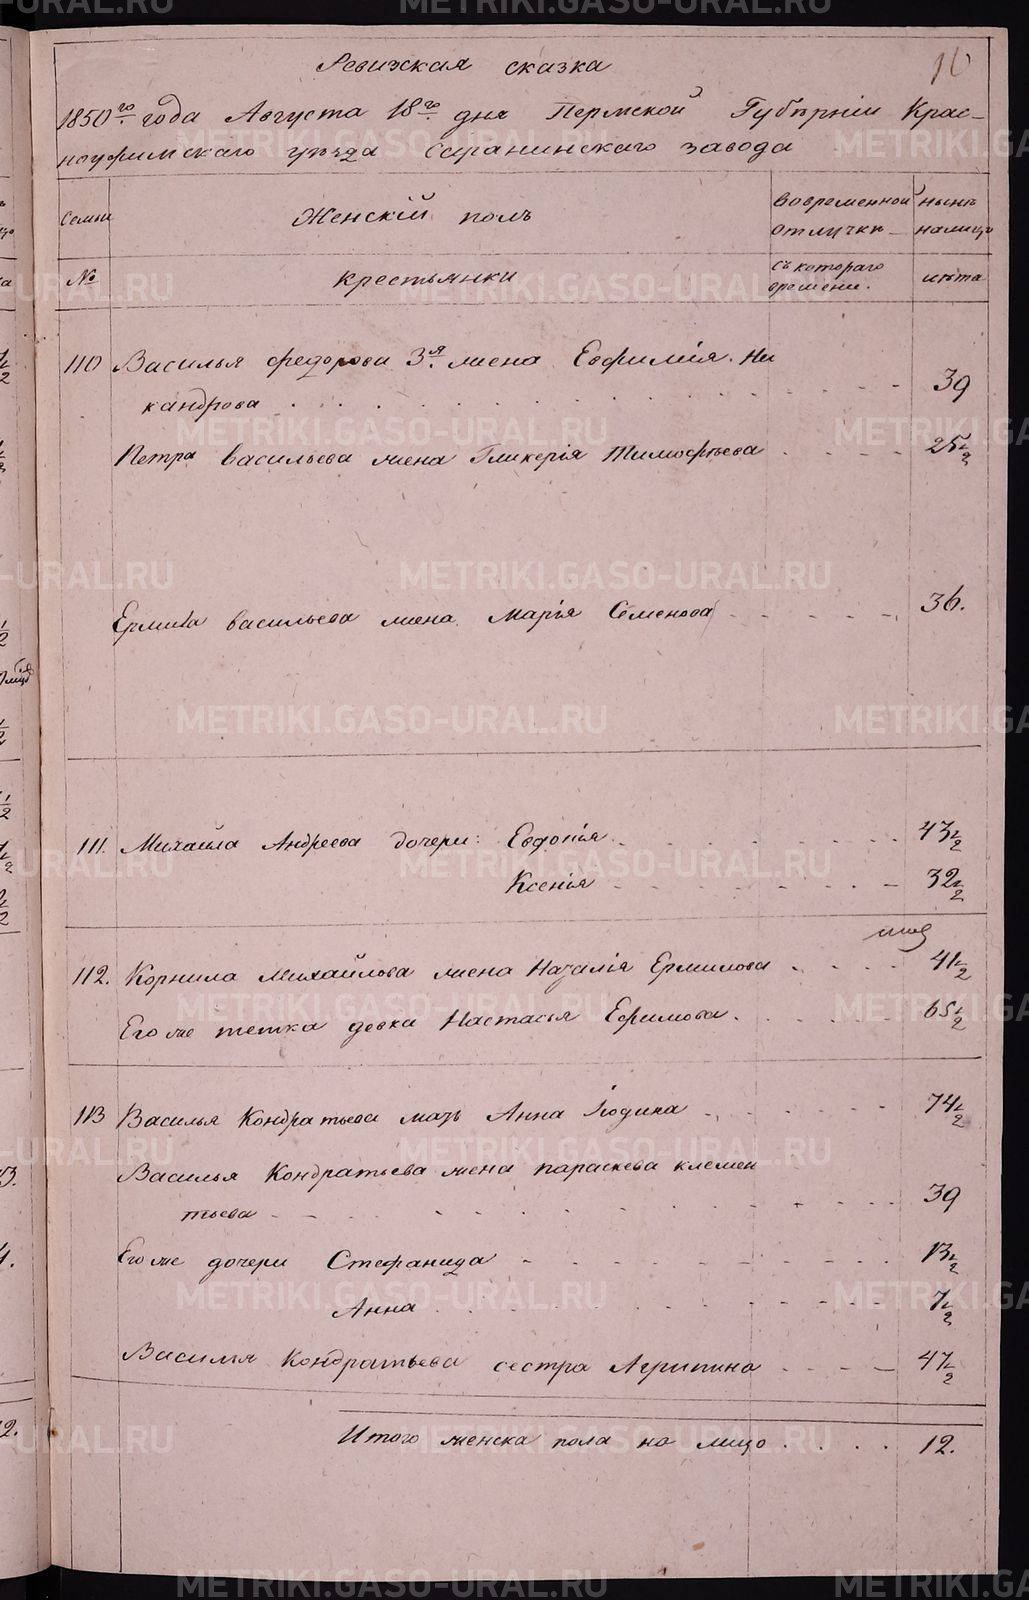 Ревизская сказка
10
1850го года Августа 18го дня Пермской Губерніи Крас-
ноуфимскаго уѣзда Саранинскаго завода
Семьи
Женскій полъ
вовременной
отлучкѣ
нынѣ
налицо
№
крестьянки
съ котораго
времени.
лѣта
110 Василья федорова 3я жена Евфимія Ни
кандрова 39
Петра васильева жена Гликерія Тимофѣева 25 1/2
Ермила васильева жена Марія Семенова 36.
111. Михаила Андреева дочери: Евдокія 43 1/2
Ксенія 32 1/2
112. Корнила Михайлова жена Наталія Ермилова 41 1/2
Его же тетка девка Настасья Ефимова. 65 1/2
113 Василья Кондратьева мать Анна Родина 74 1/2
Василья Кондратьева жена параскева клемен
тьева 39
Его же дочери Стефанида 13 1/2
Анна 7 1/2
Василья Кондратьева сестра Агрипина 47 1/2
Итого женска пола на лицо 12.
METRIKI.GASO-URAL.RU